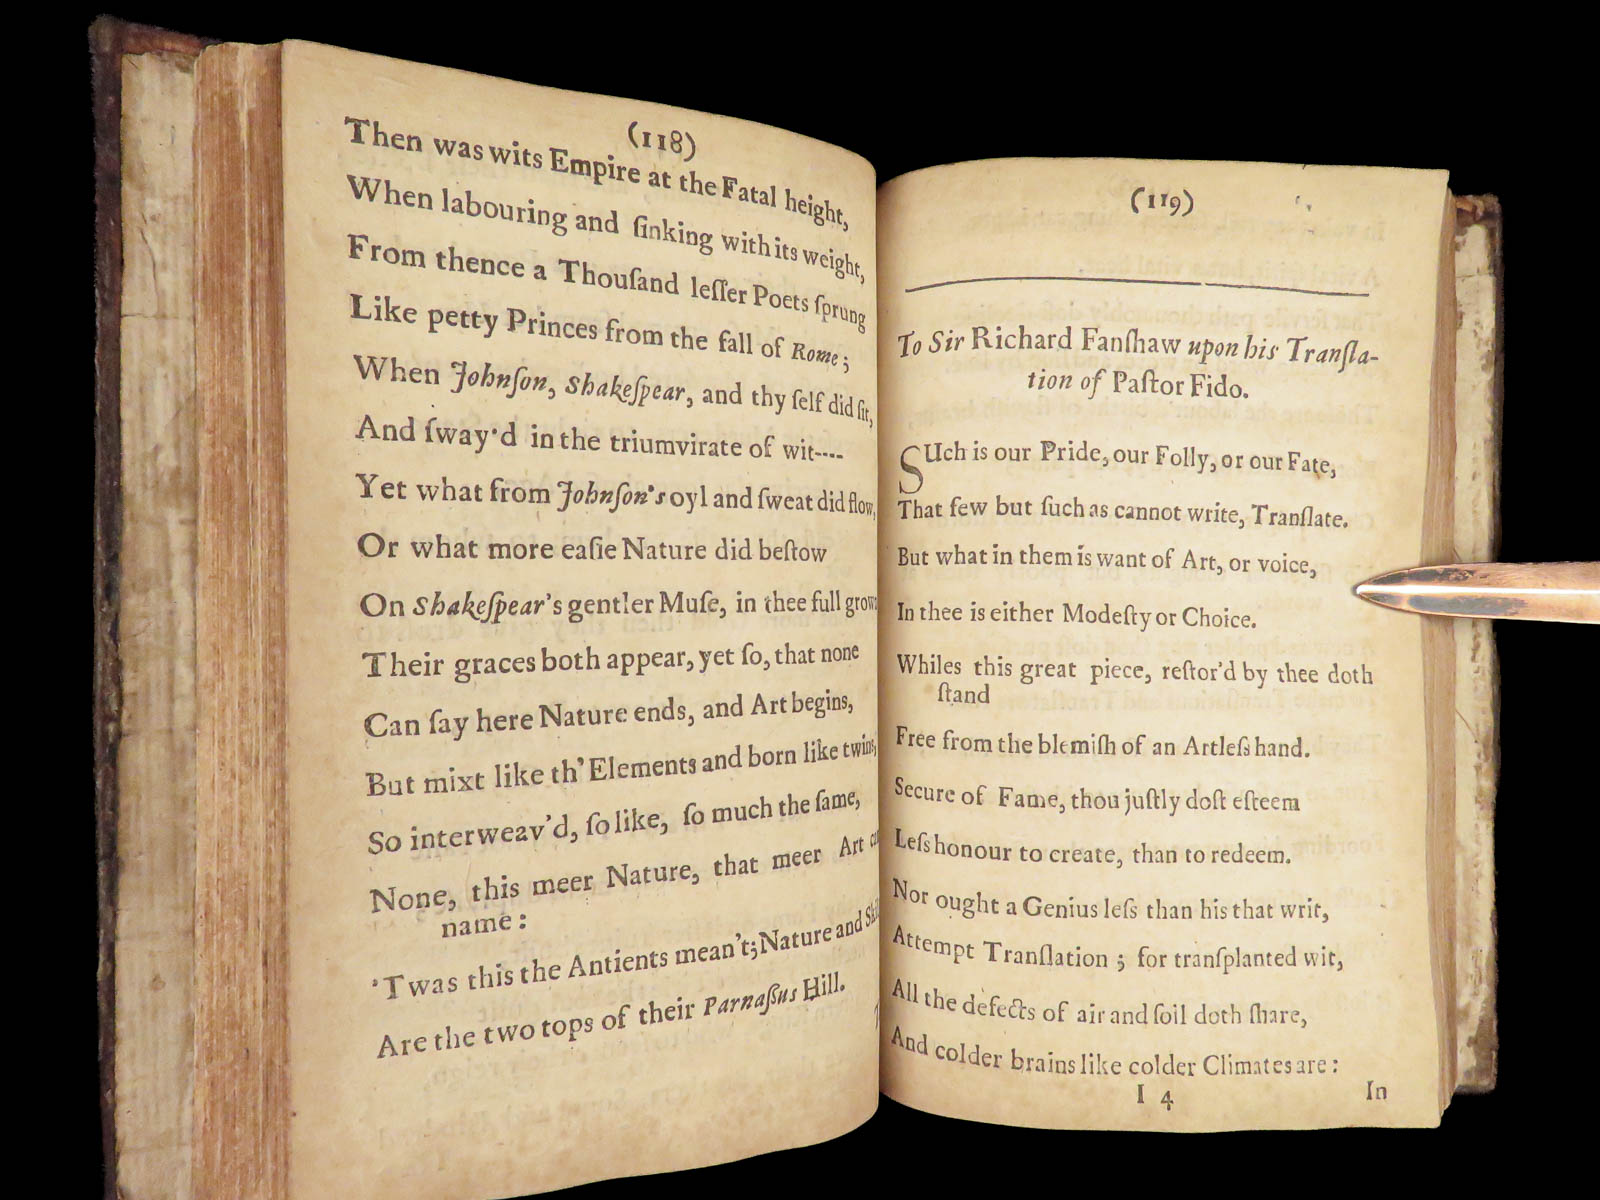 (118)
Then was wits Empire at the Fatal height,
When labouring and ſinking with its weight,
From thence a Thouſand leſſer Poets ſprung
Like petty Princes from the fall of Rome;
When Johnſon, Shakeſpear, and thy ſelf did ſit,
And ſway'd in the triumvirate of wit----
Yet what from Johnſon's oyl and ſweat did flow,
Or what more eaſie Nature did beſtow
On Shakeſpear's gentler Muſe, in thee full grown
Their graces both appear, yet ſo, that none
Can ſay here Nature ends, and Art begins,
But mixt like th' Elements and born like twins,
So interweav'd, ſo like, ſo much the ſame,
None, this meer Nature, that meer Art can
name:
'Twas this the Antients mean't; Nature and Skill
Are the two tops of their Parnaſſus Hill.
(119)
To Sir Richard Fanſhaw upon his Tranſla-
tion of Paſtor Fido.
SUch is our Pride, our Folly, or our Fate,
That few but ſuch as cannot write, Tranſlate.
But what in them is want of Art, or voice,
In thee is either Modeſty or Choice.
Whiles this great piece, reſtor'd by thee doth
ſtand
Free from the blemiſh of an Artleſs hand.
Secure of Fame, thou juſtly doſt eſteem
Leſs honour to create, than to redeem.
Nor ought a Genius leſs than his that writ,
Attempt Tranſlation; for tranſplanted wit,
All the defects of air and ſoil doth ſhare,
And colder brains like colder Climates are:
I 4 In